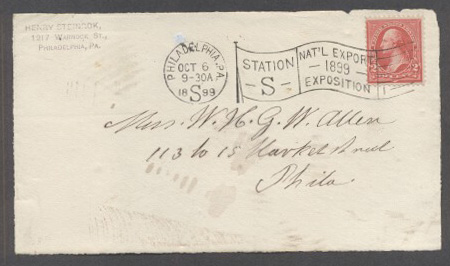 HENRY STEINOOK,
1917 WARNOCK ST.,
PHILADELPHIA, PA.
PHILADELPHIA, PA.
OCT 6
9-30A
1899
S
STATION
-S-
NAT'L EXPORT
-1899-
EXPOSITION
2 2
Miss. W. H. G. W. Allen
113 to 15 Market Street
Phila.